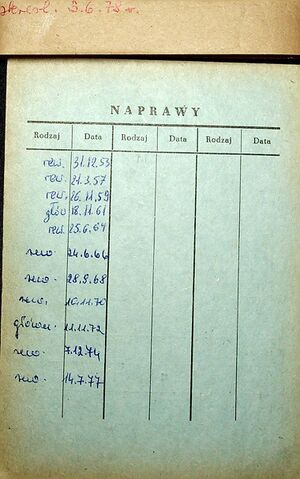 3.6.78 r.
NAPRAWY
Rodzaj Data Rodzaj Data Rodzaj Data
rew. 31.12.53
rew. 21.3.57
rew. 26.11.59
głów 18.11.61
rew. 25.6.64
rew. 24.6.66
rew. 28.9.68
rew. 10.11.70
główna. 11.11.72
rew. 7.12.74
rew. 14.7.77